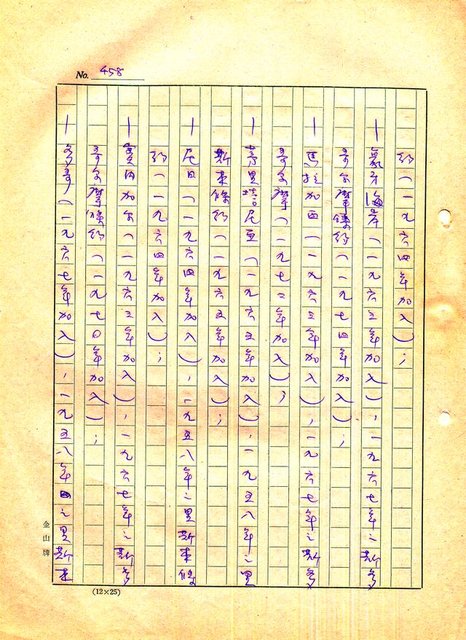 No. 458
約（一九六四年加入）；
—象牙海岸（一九六三年加入），一九六七年之斯多
哥尔摩條約（一九七四年加入）；
—馬拉加西（一九六三年加入），一九六七年之斯多
哥尔摩（一九七二年加入）；
—毛里塔尼亞（一九六五年加入），一九五八年之里
斯本條約（一九六五年加入）；
—尼日（一九六四年加入），一九五八年之里斯本條
約（一九六四年加入）；
—塞內加尔（一九六三年加入），一九六七年之斯多
哥尔摩條約（一九七〇年加入）；
—多哥（一九六七年加入），一九五八年之里斯本
金山牌
(12×25)